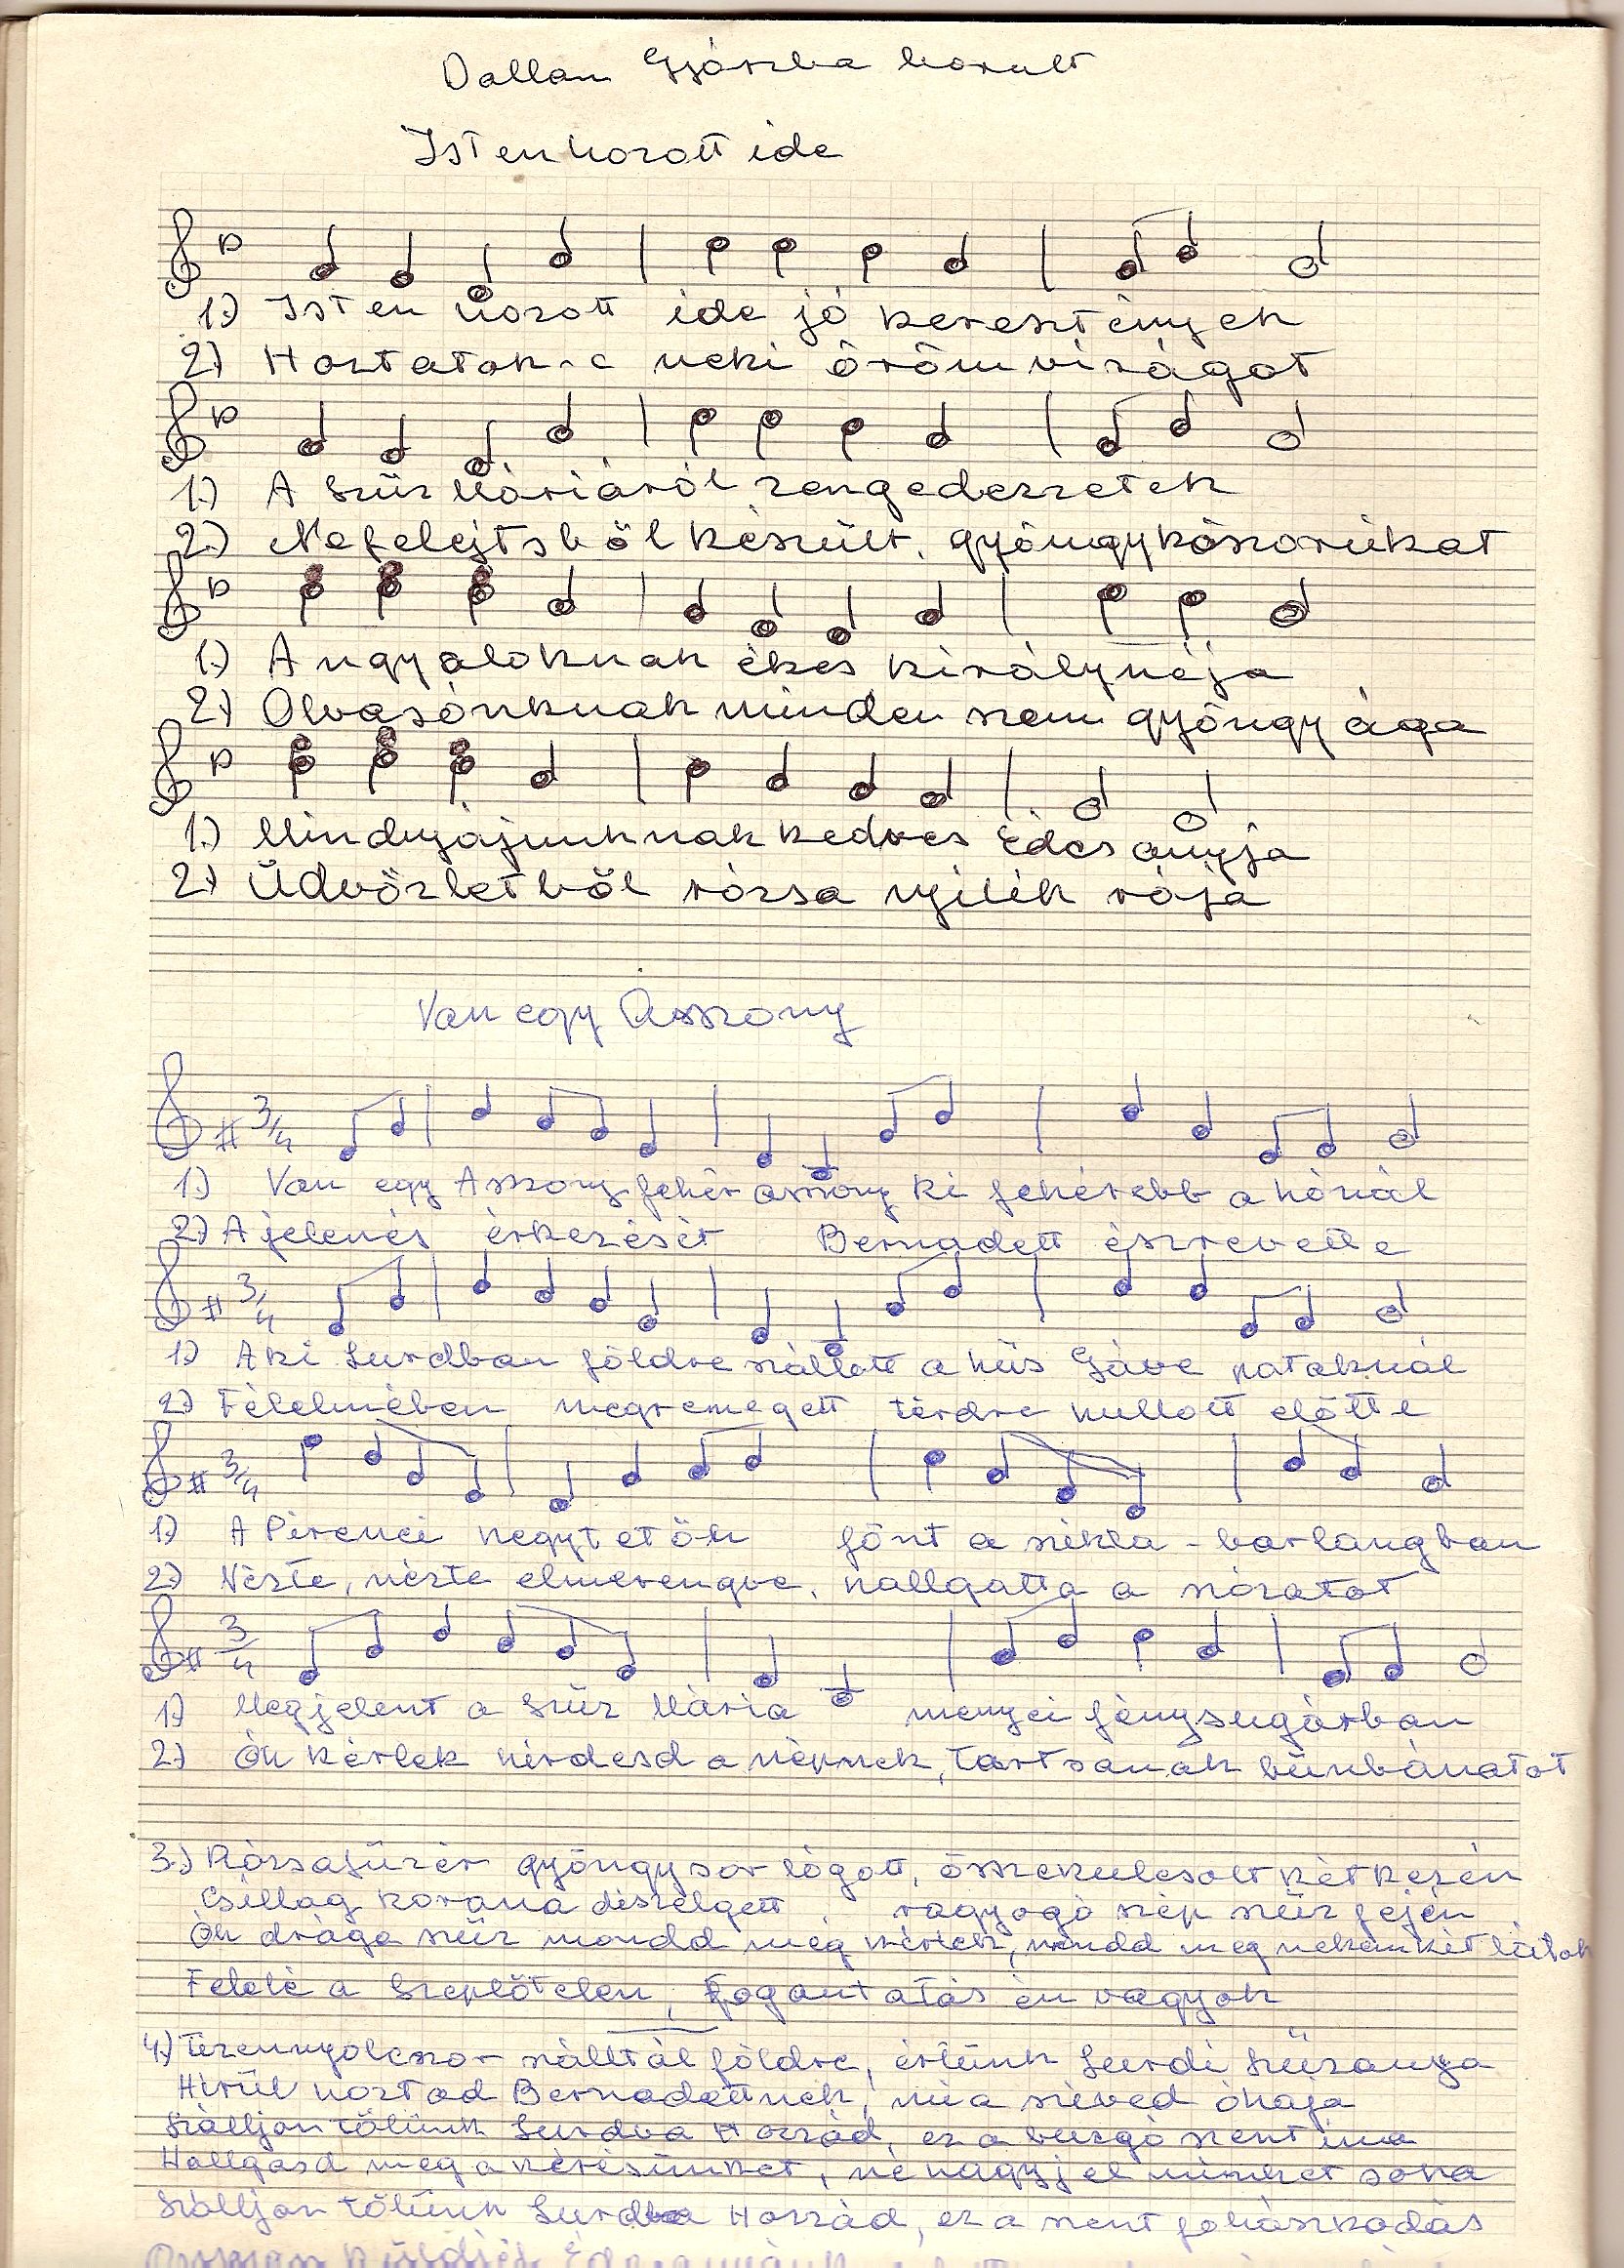 Dallam Gyászba borult
Isten hozott ide
1.) Isten hozott ide jó keresztények
2.) Hoztatok-e neki öröm virágot
1.) A Szűz Máriáról zengedezzetek
2.) Nefelejtsből készült, gyöngykoszorúkat
1.) Angyaloknak ékes királynéja
2.) Olvasónknak minden szem gyöngy ága
1.) Mindnyájunknak kedves Édes anyja
2.) Üdvözletből rózsa nyílik rája
Van egy Asszony
3/4
1.) Van egy Asszony fehér asszony ki fehérebb a hónál
2.) A jelenés érkezését Bernadett észrevette
3/4
1.) Aki Lurdban földre szállott a hűs Gáve pataknál
2.) Félelmében megremegett térdre hullott előtte
3/4
1.) A Pirenei hegytetőn fönt a szikla-barlangban
2.) Nézte, nézte elmerengve, hallgatta a szózatot
3/4
1.) Megjelent a Szűz Mária mennyei fénysugárban
2.) Óh kérlek hirdesd a népnek, tartsanak bűnbánatot
3.) Rózsafüzér gyöngysor lógott, összekulcsolt két kezén
Csillag korona díszelgett, ragyogó szép szűz fején
Óh drága szűz mondd meg kérlek, mondd meg nekem kit látok
Felelé a Szeplőtelen, fogantatás én vagyok
4.) Tizennyolcszor szálltál földre, értünk Lurdi Szűzanya
Hírül hoztad Bernadettnek, mi a szíved óhaja
Szálljon tőlünk Lurdba Hozzád, ez a buzgó szent ima
Hallgasd meg a kérésünket, ne hagyj el minket soha
Szálljon tőlünk Lurdba Hozzád, ez a szent fohászkodás